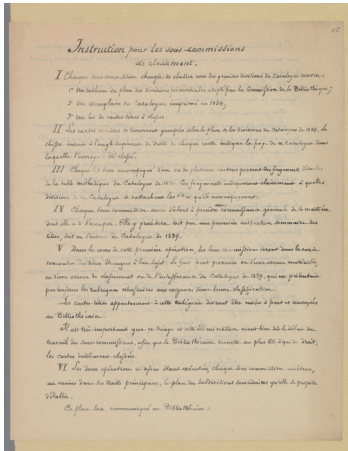 Instruction pour les sous-commissions
de classement.
I Chaque sous-commission chargée de classer une des grandes divisions du Catalogue recevra :
1° Un tableau du plan des divisions méthodiques adopté par la Commission de la Bibliothèque ;
2° Un exemplaire du Catalogue imprimé en 1889 ;
3° Un lot de cartes-titres à classer
II Les cartes seront groupées selon le plan des divisions du Catalogue de 1889. Le
chiffre inscrit à l'angle supérieur de droite de chaque carte indique la page de ce Catalogue dans
laquelle l'ouvrage est classé.
III Chaque lot sera accompagné d'un ou de plusieurs cartons portant les fragments
de la table méthodique du Catalogue de 1889. Ces fragments indiqueront clairement à quelles
divisions de ce Catalogue se rattachent les titres qu'ils accompagnent.
IV Chaque sous-commission aura d'abord à prendre connaissance générale de la matière
dont elle a à s'occuper. Elle y procédera soit par une première inspection sommaire des
titres, soit au moyen du Catalogue de 1889.
V Dans le cours de cette première opération, les sous-commissions seront dans le cas de
rencontrer des titres étrangers à leur sujet. Le fait peut provenir ou d'une erreur matérielle,
ou d'une erreur de classement ou de l'insuffisance du Catalogue de 1889, qui ne présentait
pas toutes les rubriques nécessaires aux exigences d'une bonne classification.
Les cartes-titres appartenant à cette catégorie devront être mises à part et renvoyées
au Bibliothécaire.
Il est très important que ce triage et cette élimination aient lieu dès le début du
travail des sous-commissions, afin que le Bibliothécaire remette au plus tôt, à qui de droit,
les cartes indûment classées.
VI Les deux opérations ci-dessus étant exécutées, chaque sous-commission
au moins dans ses traits principaux, le plan des subdivisions secondaires qu'elle se propose
d'établir.
Ce plan sera communiqué au Bibliothécaire.